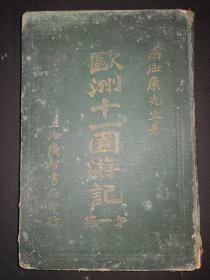 南海康先生著
歐洲十一國游記
第一編
上海廣智書局印行